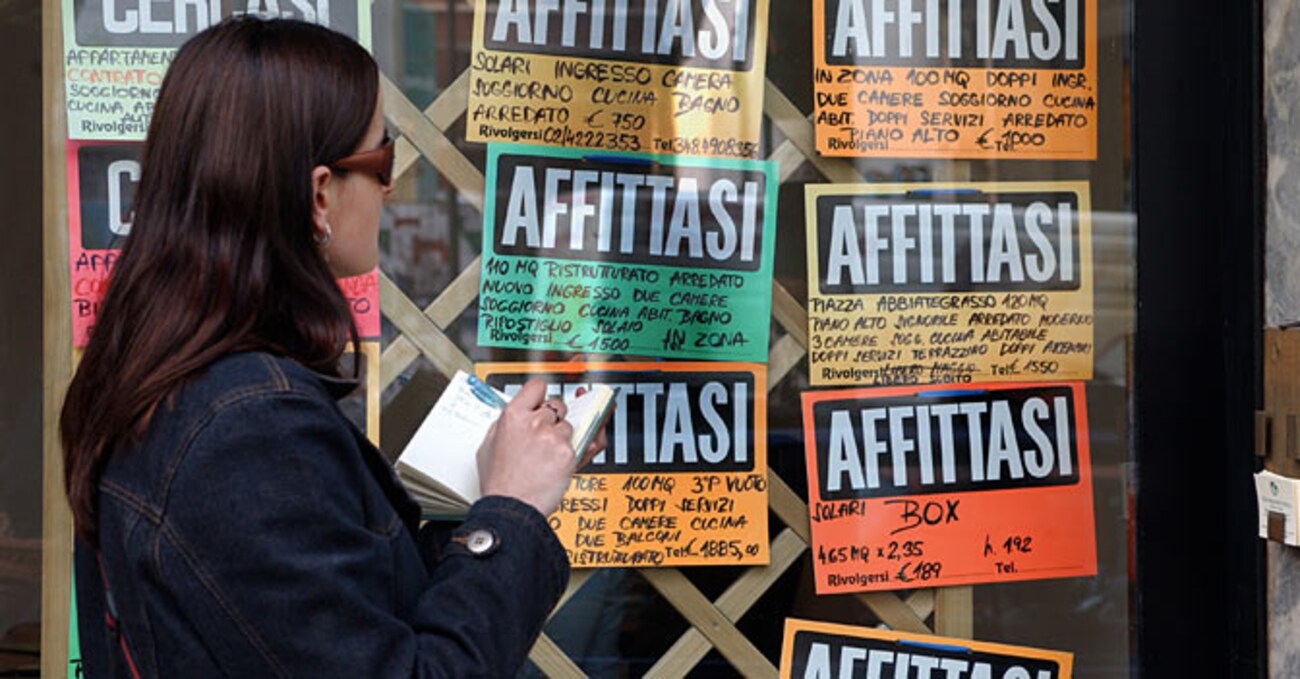 CERCASI
APPARTAMEN
CONTRATO
SOGGIORNO
CUCINA AB
Rivolgersi
AFFITTASI
SOLARI INGRESSO CAMERA
SOGGIORNO CUCINA BAGNO
ARREDATO € 750
Rivolgersi 02/4222353 Tel. 348490835
AFFITTASI
IN ZONA 100 MQ DOPPI INGR.
DUE CAMERE SOGGIORNO CUCINA
ABIT. DOPPI SERVIZI ARREDATO
PIANO ALTO € 1000
Rivolgersi Tel.
AFFITTASI
110 MQ RISTRUTTURATO ARREDATO
NUOVO INGRESSO DUE CAMERE
SOGGIORNO CUCINA ABIT. BAGNO
RIPOSTIGLIO SOLAIO
Rivolgersi € 1500 IN ZONA
AFFITTASI
PIAZZA ABBIATEGRASSO 120MQ
PIANO ALTO SIGNORILE ARREDATO MODERNO
3 CAMERE SOGG. CUCINA ABITABILE
DOPPI SERVIZI TERRAZZINO DOPPI
Rivolgersi Tel. € 1550
LIBERO SUBITO
FITTASI
TORE 100MQ 3°P VUOTO
RESSI DOPPI SERVIZI
O DUE CAMERE CUCINA
DUE BALCONI
RISTRUTTURATO Tel. € 1885,00
AFFITTASI
SOLARI BOX
465 MQ x 2,35 h. 192
Rivolgersi €189 Tel.
AFFITTASI